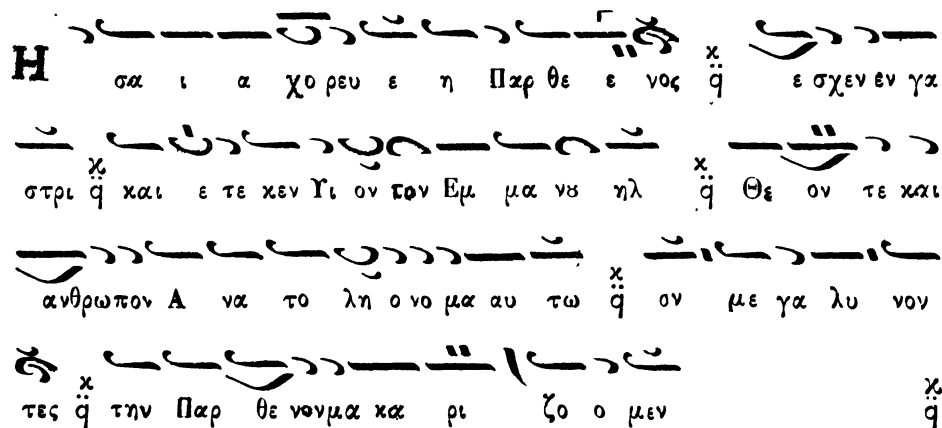 Η σα ι α χο ρευ ε η Παρ θε ε νος κ q̈ ε σχεν εν γα
στρι κ q̈ και ε τε κεν Υι ον τον Εμ μα νȣ ηλ κ q̈ Θε ον τε και
ανθρωπον Α να το λη ο νο μα αυ τω κ q̈ ον με γα λυ νον
τες κ q̈ την Παρ θε νον μα κα ρι ζο ο μεν κ q̈